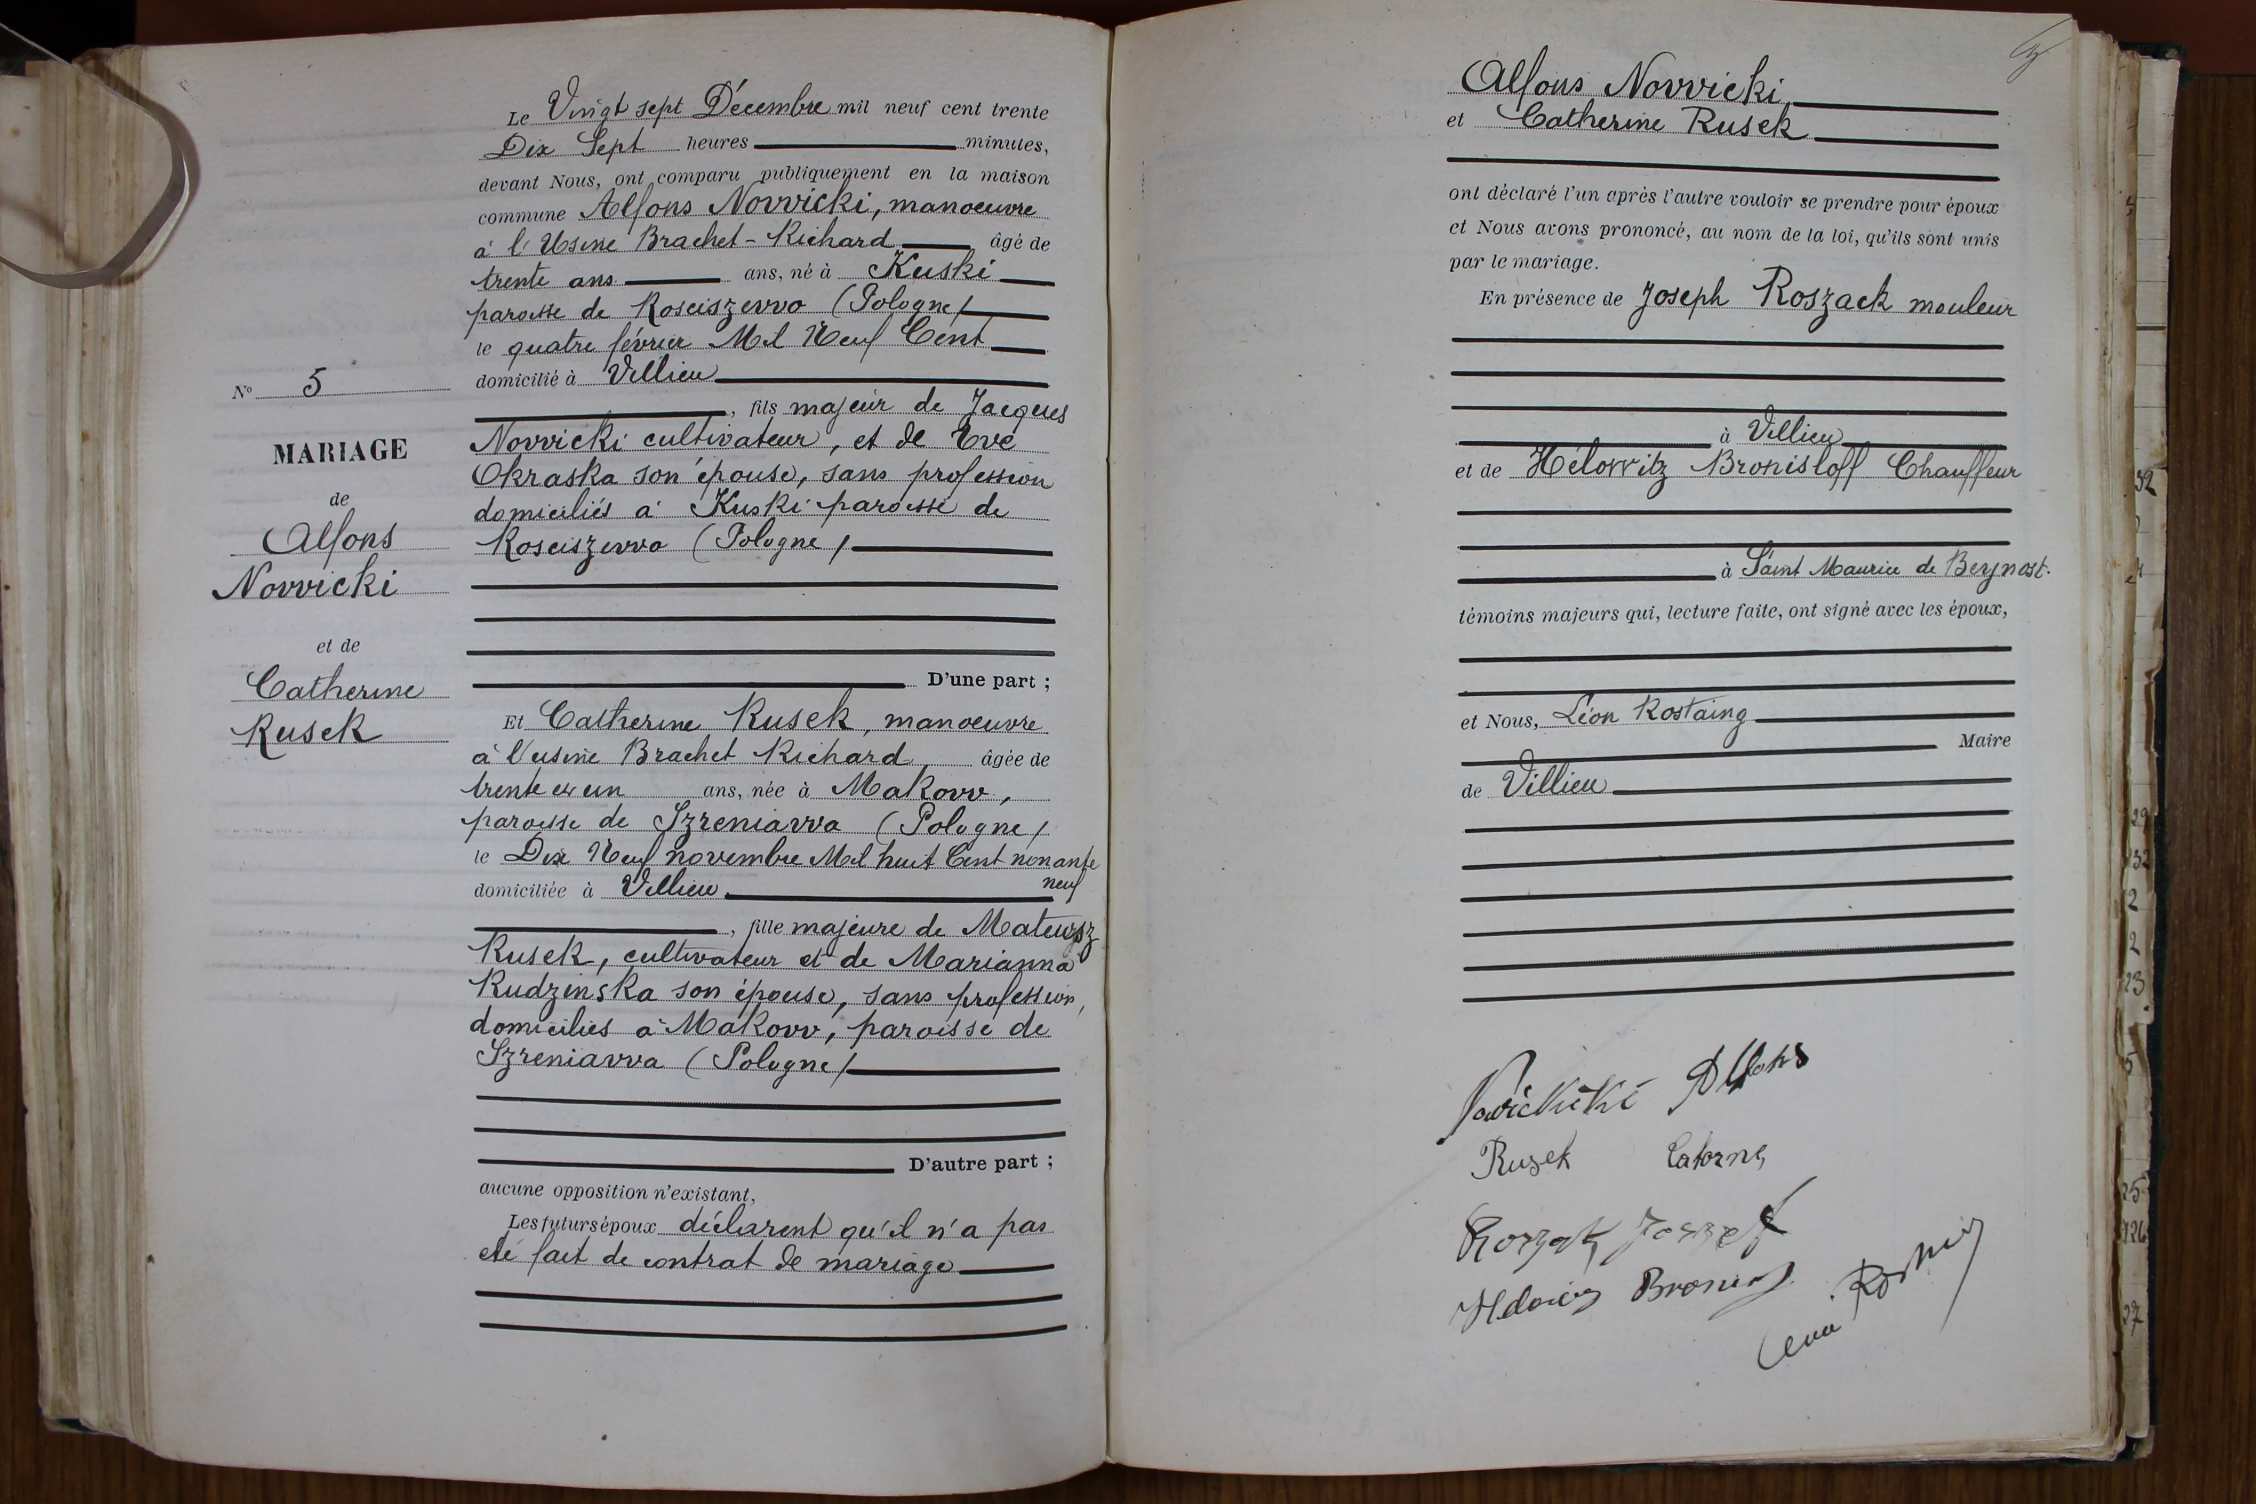 Le Vingt sept Décembre mil neuf cent trente
Dix Sept heures minutes,
devant Nous, ont comparu publiquement en la maison
commune Alfons Novvicki, manoeuvre
à l'Usine Brachet-Richard âgé de
trente ans ans, né à Kuski
paroisse de Rosciszevvo (Pologne)
le quatre février Mil Neuf Cent
domicilié à Villieu
, fils majeur de Jacques
Novvicki cultivateur, et de Eve
Okraska son épouse, sans profession
domiciliés à Kuski paroisse de
Rosciszevvo (Pologne)
D'une part ;
Nº 5
MARIAGE
de
Alfons
Novvicki
et de
Catherine
Rusek
Et Catherine Rusek, manoeuvre
à l'usine Brachet Richard, âgée de
trente et un ans, née à Makovv,
paroisse de Szreniavva (Pologne)
le Dix Neuf novembre Mil huit Cent nonante
neuf
domiciliée à Villieu
, fille majeure de Mateusz
Rusek, cultivateur et de Marianna
Rudzinska son épouse, sans profession,
domiciliés à Makovv, paroisse de
Szreniavva (Pologne)
D'autre part ;
aucune opposition n'existant,
Les futurs époux déclarent qu'il n'a pas
été fait de contrat de mariage
Alfons Novvicki
et Catherine Rusek
ont déclaré l'un après l'autre vouloir se prendre pour époux
et Nous avons prononcé, au nom de la loi, qu'ils sont unis
par le mariage.
En présence de Joseph Roszack mouleur
à Villieu
et de Hélovvitz Bronisloff Chauffeur
à Saint Maurice de Beynost.
témoins majeurs qui, lecture faite, ont signé avec les époux,
et Nous, Léon Rostaing
Maire
de Villieu
Alfons
Rusek
52
29
32
2
2
23
5
25
126
27